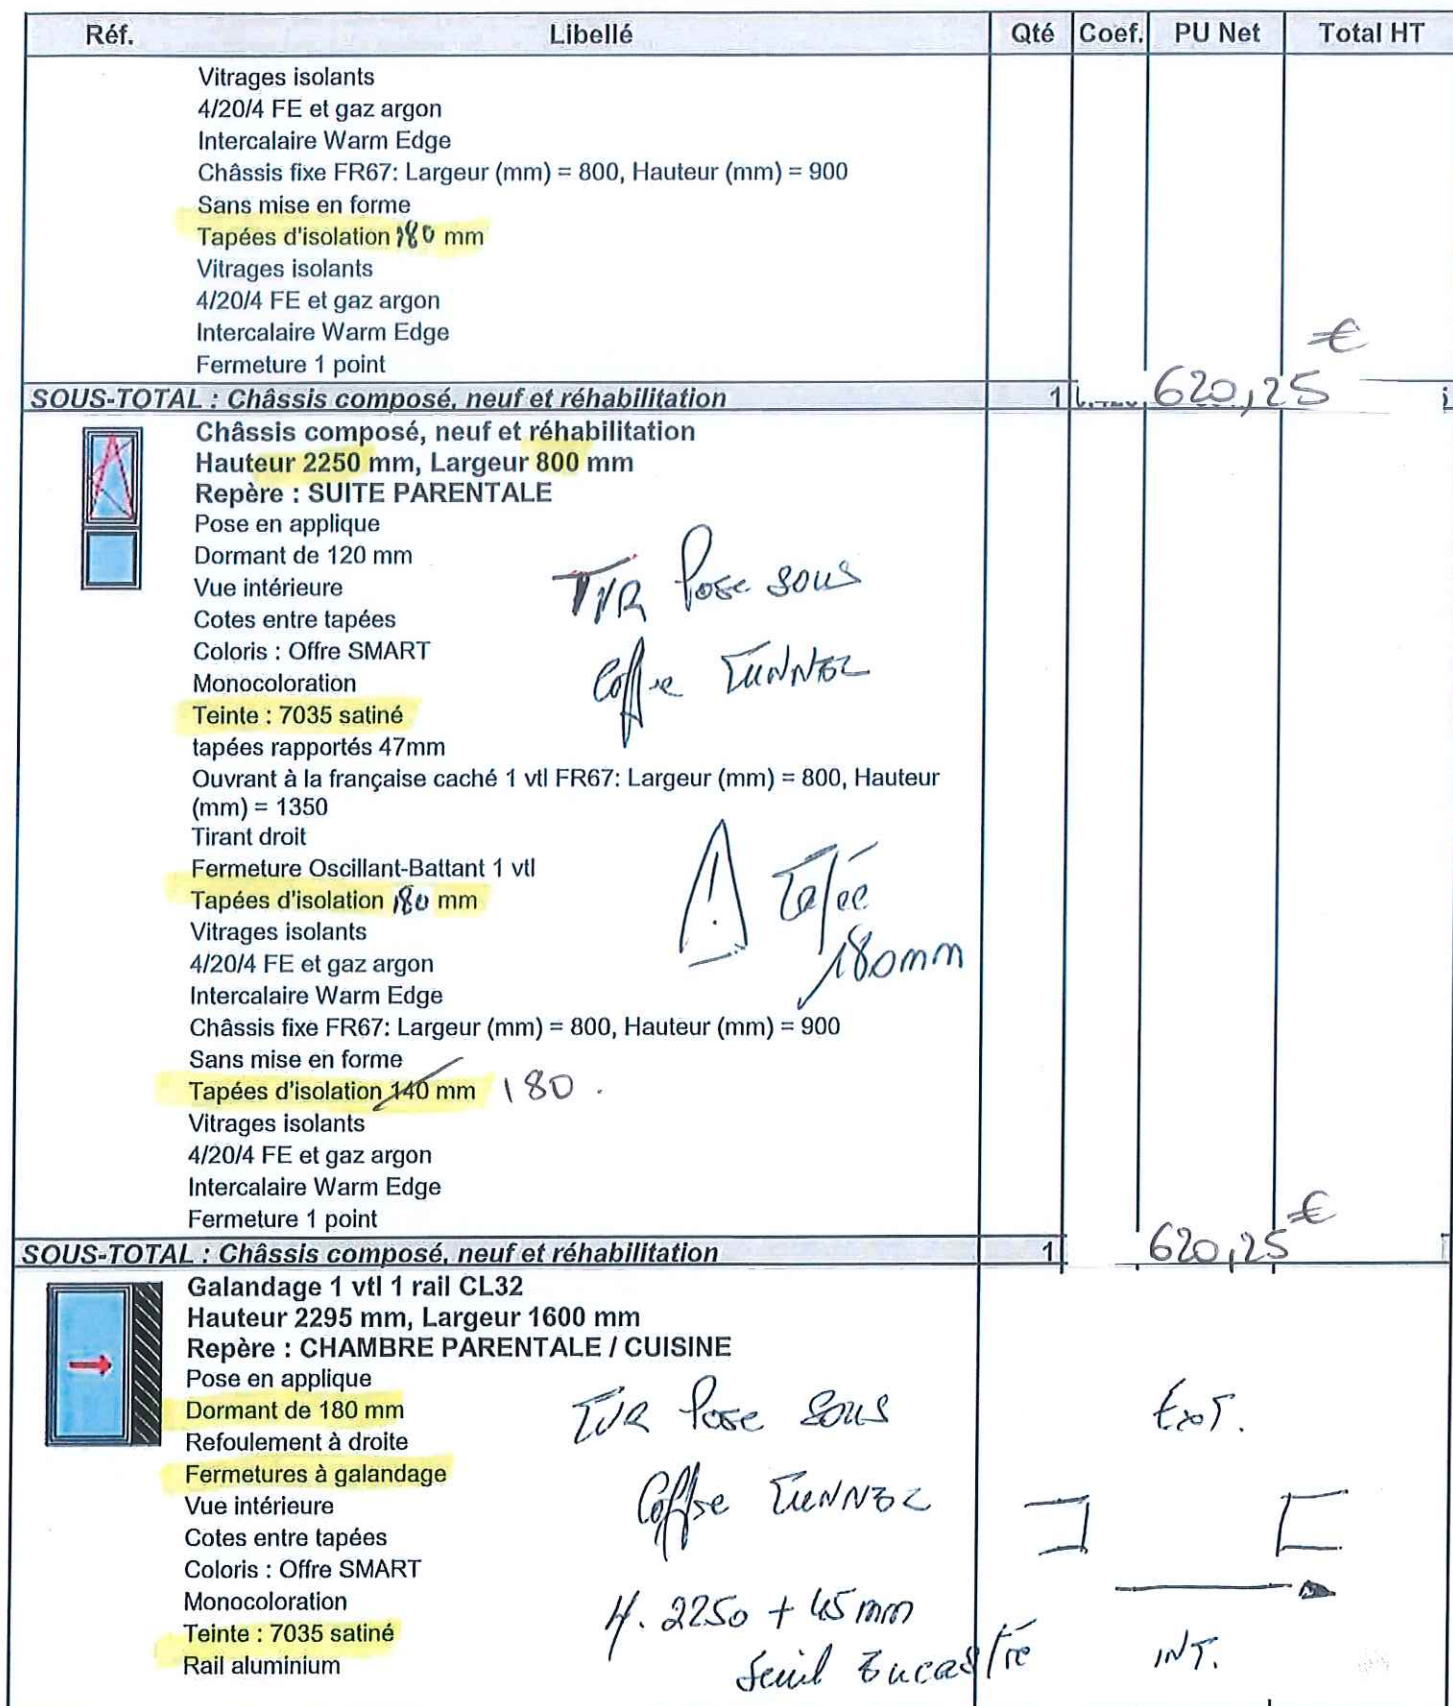 Réf. Libellé Qté Coef. PU Net Total HT
Vitrages isolants
4/20/4 FE et gaz argon
Intercalaire Warm Edge
Châssis fixe FR67: Largeur (mm) = 800, Hauteur (mm) = 900
Sans mise en forme
Tapées d'isolation 180 mm
Vitrages isolants
4/20/4 FE et gaz argon
Intercalaire Warm Edge
Fermeture 1 point
SOUS-TOTAL : Châssis composé, neuf et réhabilitation 1 620,25 €
Châssis composé, neuf et réhabilitation
Hauteur 2250 mm, Largeur 800 mm
Repère : SUITE PARENTALE
Pose en applique
Dormant de 120 mm
Vue intérieure
TVR Pose sous
Cotes entre tapées
Coloris : Offre SMART
Monocoloration
Coffre TUNNEL
Teinte : 7035 satiné
tapées rapportés 47mm
Ouvrant à la française caché 1 vtl FR67: Largeur (mm) = 800, Hauteur
(mm) = 1350
Tirant droit
Fermeture Oscillant-Battant 1 vtl
Tapées d'isolation 180 mm
! Tapée
Vitrages isolants
4/20/4 FE et gaz argon
180mm
Intercalaire Warm Edge
Châssis fixe FR67: Largeur (mm) = 800, Hauteur (mm) = 900
Sans mise en forme
Tapées d'isolation 140 mm 180.
Vitrages isolants
4/20/4 FE et gaz argon
Intercalaire Warm Edge
Fermeture 1 point
SOUS-TOTAL : Châssis composé, neuf et réhabilitation 1 620,25 €
Galandage 1 vtl 1 rail CL32
Hauteur 2295 mm, Largeur 1600 mm
Repère : CHAMBRE PARENTALE / CUISINE
Pose en applique
Dormant de 180 mm
TVR Pose sous Ext.
Refoulement à droite
Fermetures à galandage
Vue intérieure
Coffre TUNNEL
Cotes entre tapées
Coloris : Offre SMART
Monocoloration
H. 2250 + 45 mm
Teinte : 7035 satiné
Rail aluminium
Seuil Encastré INT.